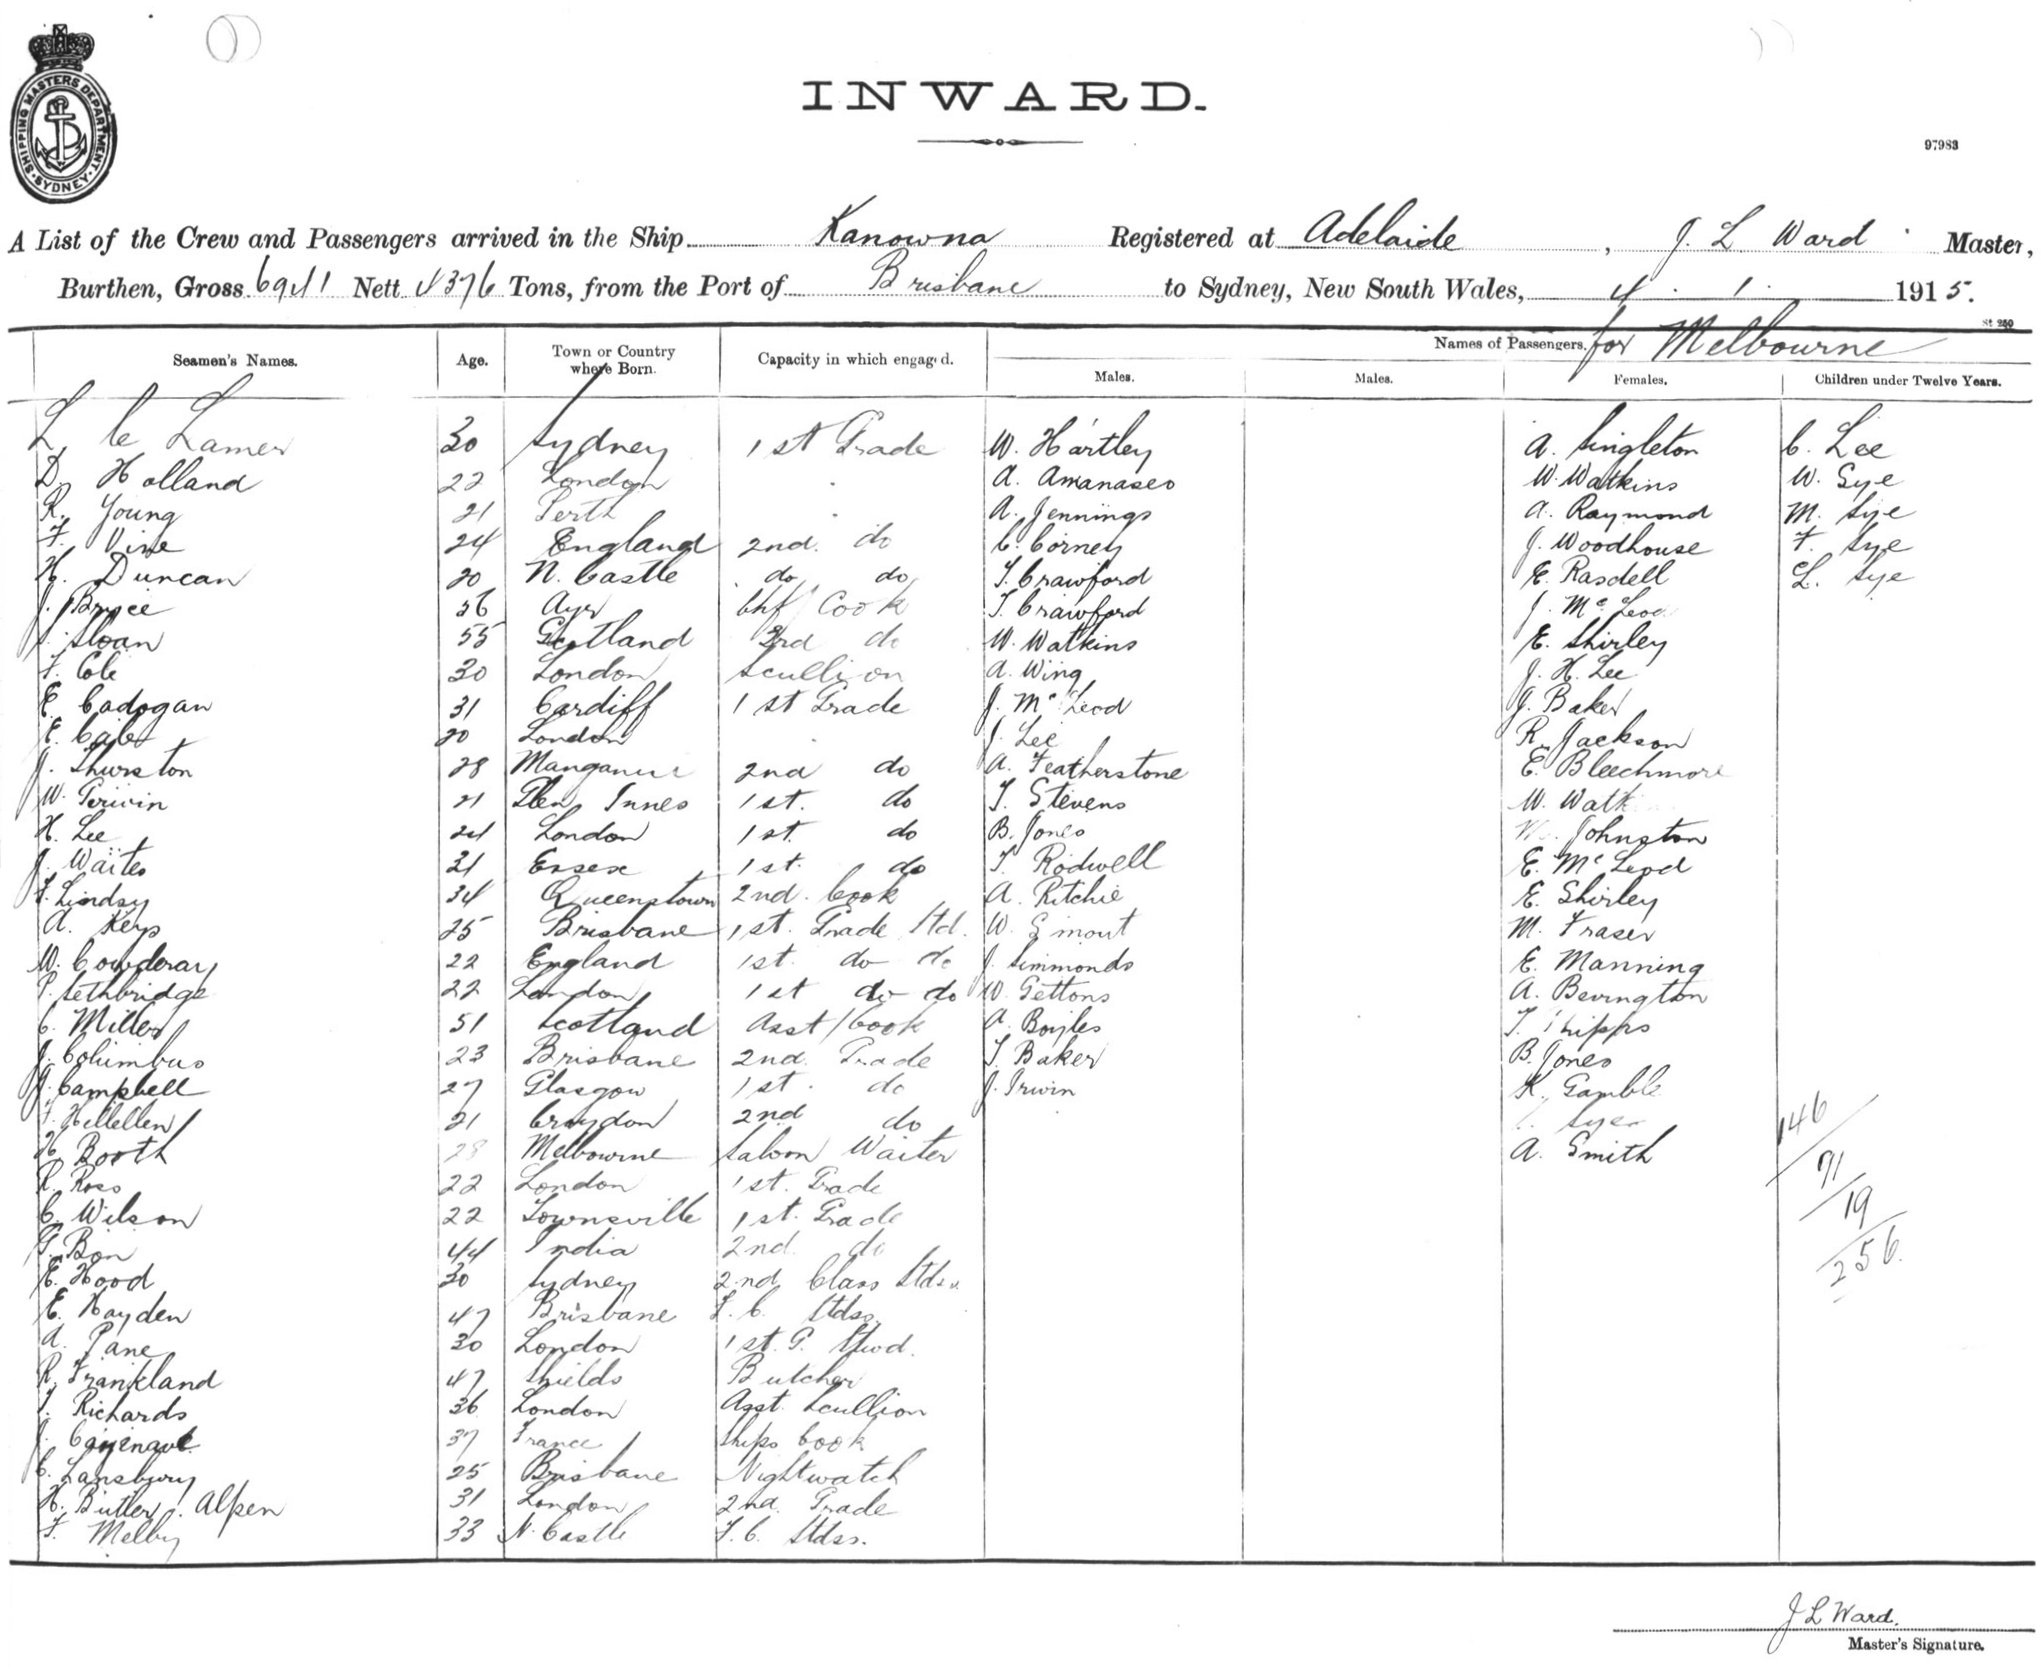 SHIPPING MASTERS DEPARTMENT. SYDNEY.
INWARD.
97983
A List of the Crew and Passengers arrived in the Ship Kanowna Registered at Adelaide, J. L Ward Master,
Burthen, Gross 6941 Nett 4376 Tons, from the Port of Brisbane to Sydney, New South Wales, 4. 1. 1915.
St 250
Names of Passengers. for Melbourne
Seamen's Names. Age. Town or Country where Born. Capacity in which engaged. Males. Males. Females. Children under Twelve Years.
L. le Lamer 30 Sydney 1st Grade W. Hartley A. Singleton C. Lee
D. Holland 22 London A. W. Watkins W. Sye
R. Young 21 Perth A. Jennings A. Raymond M. Sye
F. Vine 24 England 2nd. do C. Corney J. Woodhouse F. Sye
H. Duncan 20 N. Castle do do T. Crawford E. Rasdell L. Sye
J. Bryce 56 Ayr Chf Cook T. Crawford J. McLeod
Sloan 55 Scotland 3rd do W. Watkins E. Shirley
F. Cole 30 London Scullion A. Wing J. H. Lee
E. Cadogan 31 Cardiff 1st Grade J. McLeod J. Baker
E. 20 London J. Lee R. Jackson
J. Thurston 28 2nd do A. Featherstone E. Bleechmore
W. 21 Glen Innes 1st. do T. Stevens W.
H. Lee 24 London 1st. do B. Jones Johnston
J. Waites 21 Essex 1st. do T. Rodwell E. McLeod
Lindsay 34 Queenstown 2nd. Cook A. Ritchie E. Shirley
A. Keys 25 Brisbane 1st. Grade Std. W. M. Fraser
W. Cowderay 22 England 1st. do do J. Simmonds E. Manning
P. Lethbridge 22 London 1st do do W. Gettons A. Bevington
C. Miller 51 Scotland Asst/Cook A. Boyles T.
J. Columbus 23 Brisbane 2nd. Grade T. Baker B. Jones
J. Campbell 27 Glasgow 1st. do J. Irwin K. Gamble
F. 21 Croydon 2nd do
H. Booth 28 Melbourne Saloon Waiter A. Smith
146
R. Ross 22 London 1st. Grade
91
C. Wilson 22 Townsville 1st. Grade
19
G. Bon 44 India 2nd. do
256.
E. Hood 30 Sydney 2nd Class Stdss.
E. Hayden 47 Brisbane F. C. Stdss.
A. Pane 30 London 1st. G. Stwd.
R. Frankland 47 Shields Butcher
T. Richards 36 London Asst. Scullion
J. 37 France Ships Cook
C. Lansbury 25 Brisbane Nightwatch
H. Butler. Alpen 31 London 2nd Grade
F. Melby 33 N. Castle F. C. Stdss.
J L Ward.
Master's Signature.